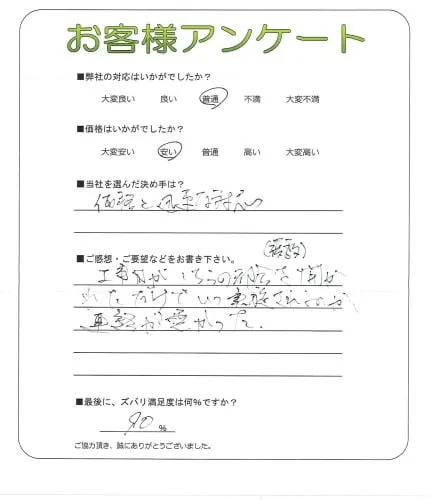 お客様アンケート
■弊社の対応はいかがでしたか？
大変良い 良い 普通 不満 大変不満
■価格はいかがでしたか？
大変安い 安い 普通 高い 大変高い
■当社を選んだ決め手は？
価格と迅速な対応
■ご感想・ご要望などをお書き下さい。
工事日が いつの
れただけでいつ
連絡が悪かった.
■最後に、ズバリ満足度は何％ですか？
%
ご協力頂き、誠にありがとうございました。